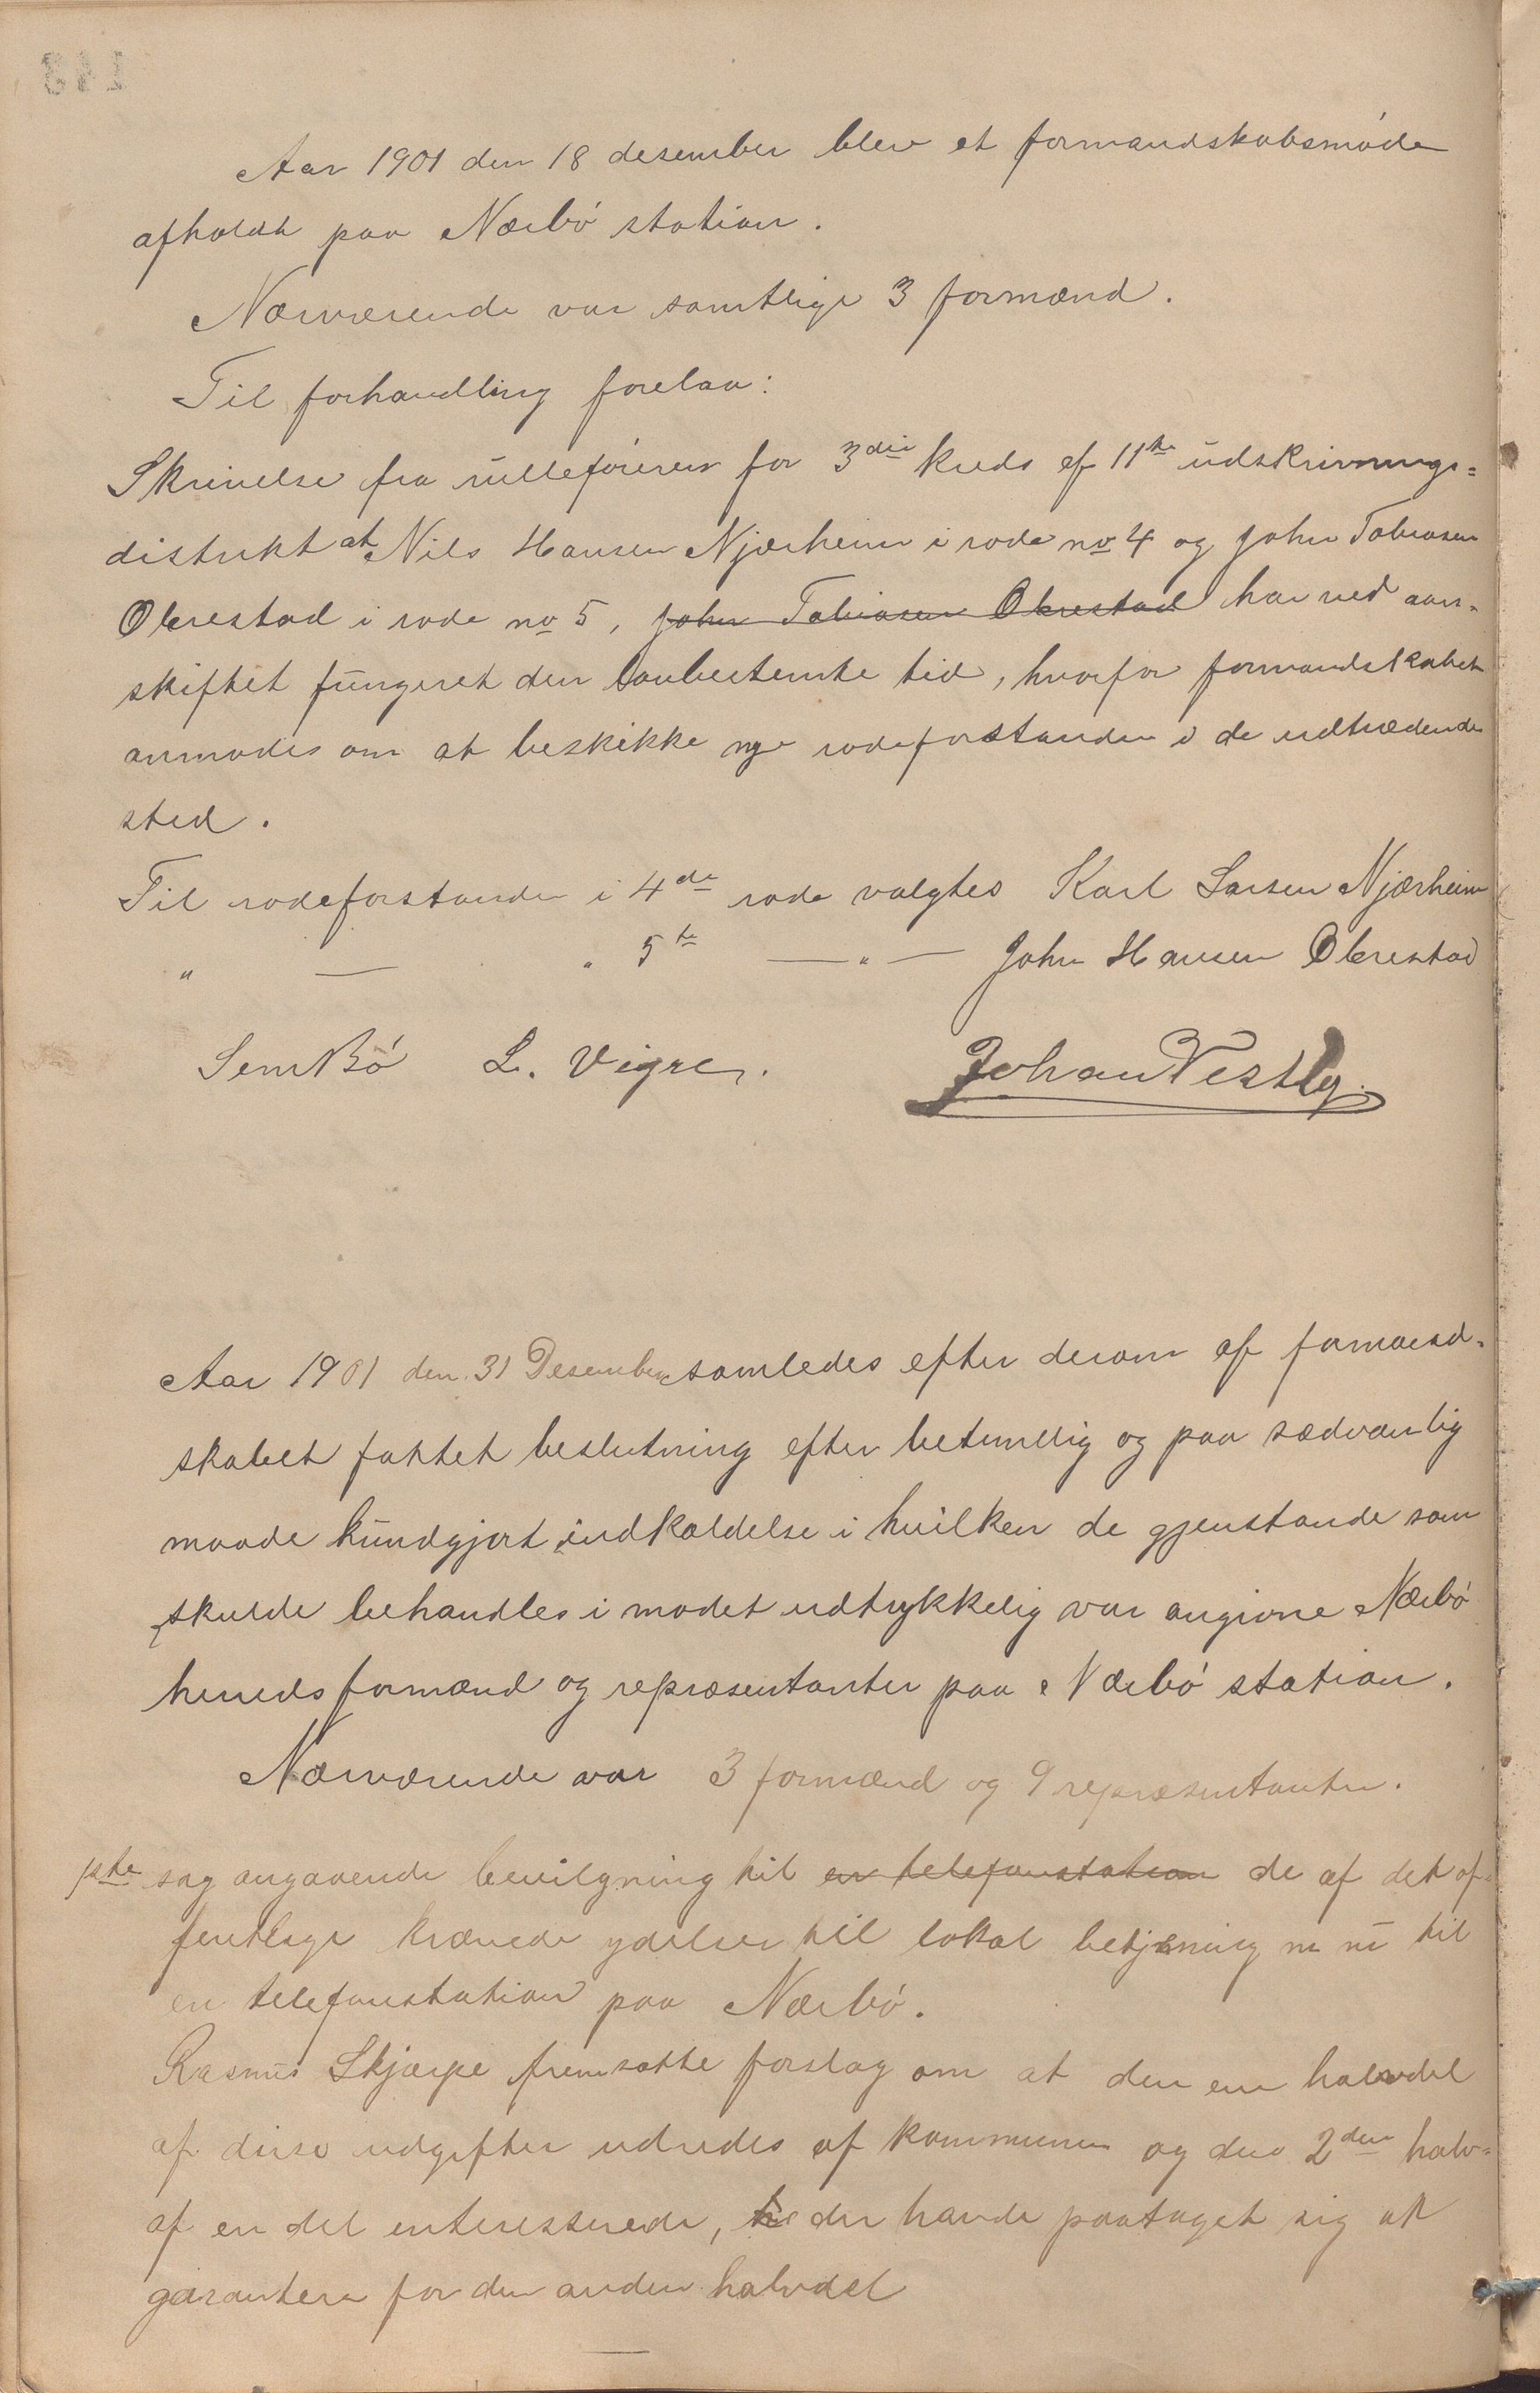 Aar 1901 den 18 desember blev et formandskabsmøde
afholdt paa Nærbø station.
Nærværende var samtlige 3 formænd.
Til forhandling forelaa:
Skrivelse fra rulleføreren for 3die kreds af 11te udskrivnings=
distrikt at Nils Hansen Njærheim i rode no 4 og John Tobiasen
Obrestad i rode no 5, John Tobiasen Obrestad har ved aar-
skiftet fungeret den lovbestemte tid, hvorfor formandskabet
anmodes om at beskikke nye rodeforstander i de udtrædendes
sted.
Til rodeforstander i 4de rode valgtes Karl Larsen Njærheim
" — " 5te — " — John Hansen Obrestad
Sem Bø L. Vigre. Johan Vestly.
Aar 1901 den 31 Desember samledes efter derom af formand-
skabet fattet beslutning efter betimelig og paa sædvanlig
maade kundgjort indkaldelse i hvilken de gjenstande som
skulde behandles i mødet udtrykkelig var angivne Nærbø
herreds formænd og repræsentanter paa Nærbø station.
Nærværende var 3 formænd og 9 repræsentanter.
1ste sag angaaende bevilgning til en telefonstation de af det of-
fentlige krævede ydelser til lokal betjening m m til
en telefonstation paa Nærbø.
Rasmus Skjærpe fremsatte forslag om at den ene halvdel
af disse udgifter udredes af kommunen og den 2den halv-
af en del interesserede, der havde paataget sig at
garantere for den anden halvdel